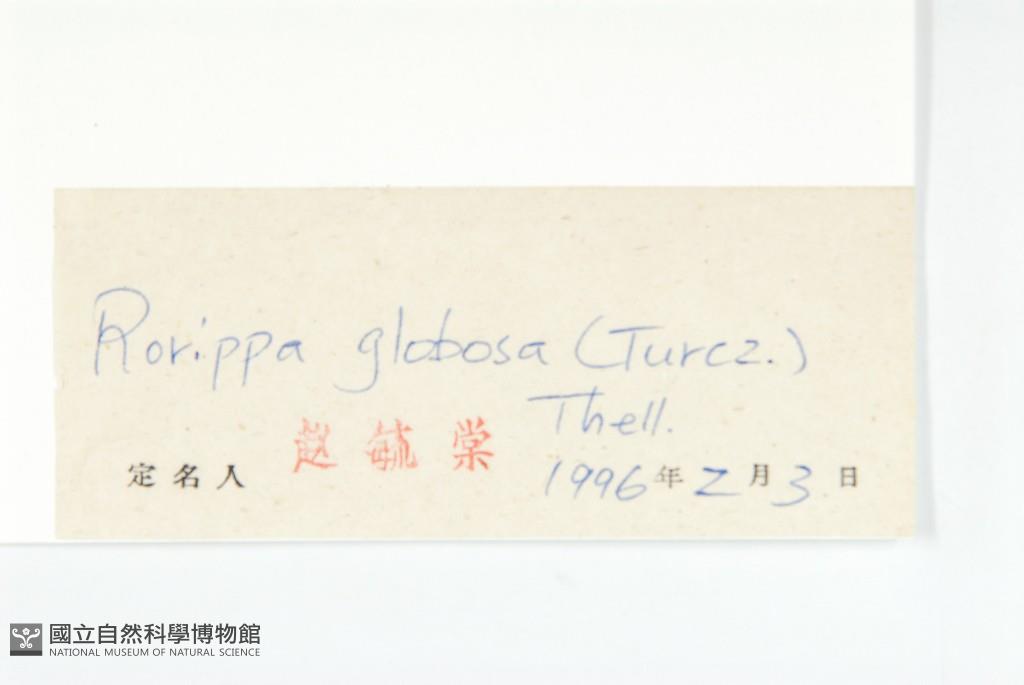 Rorippa globosa (Turcz.)
Thell.
定名人 赵毓棠 1996年2月3日
國立自然科學博物館
NATIONAL MUSEUM OF NATURAL SCIENCE